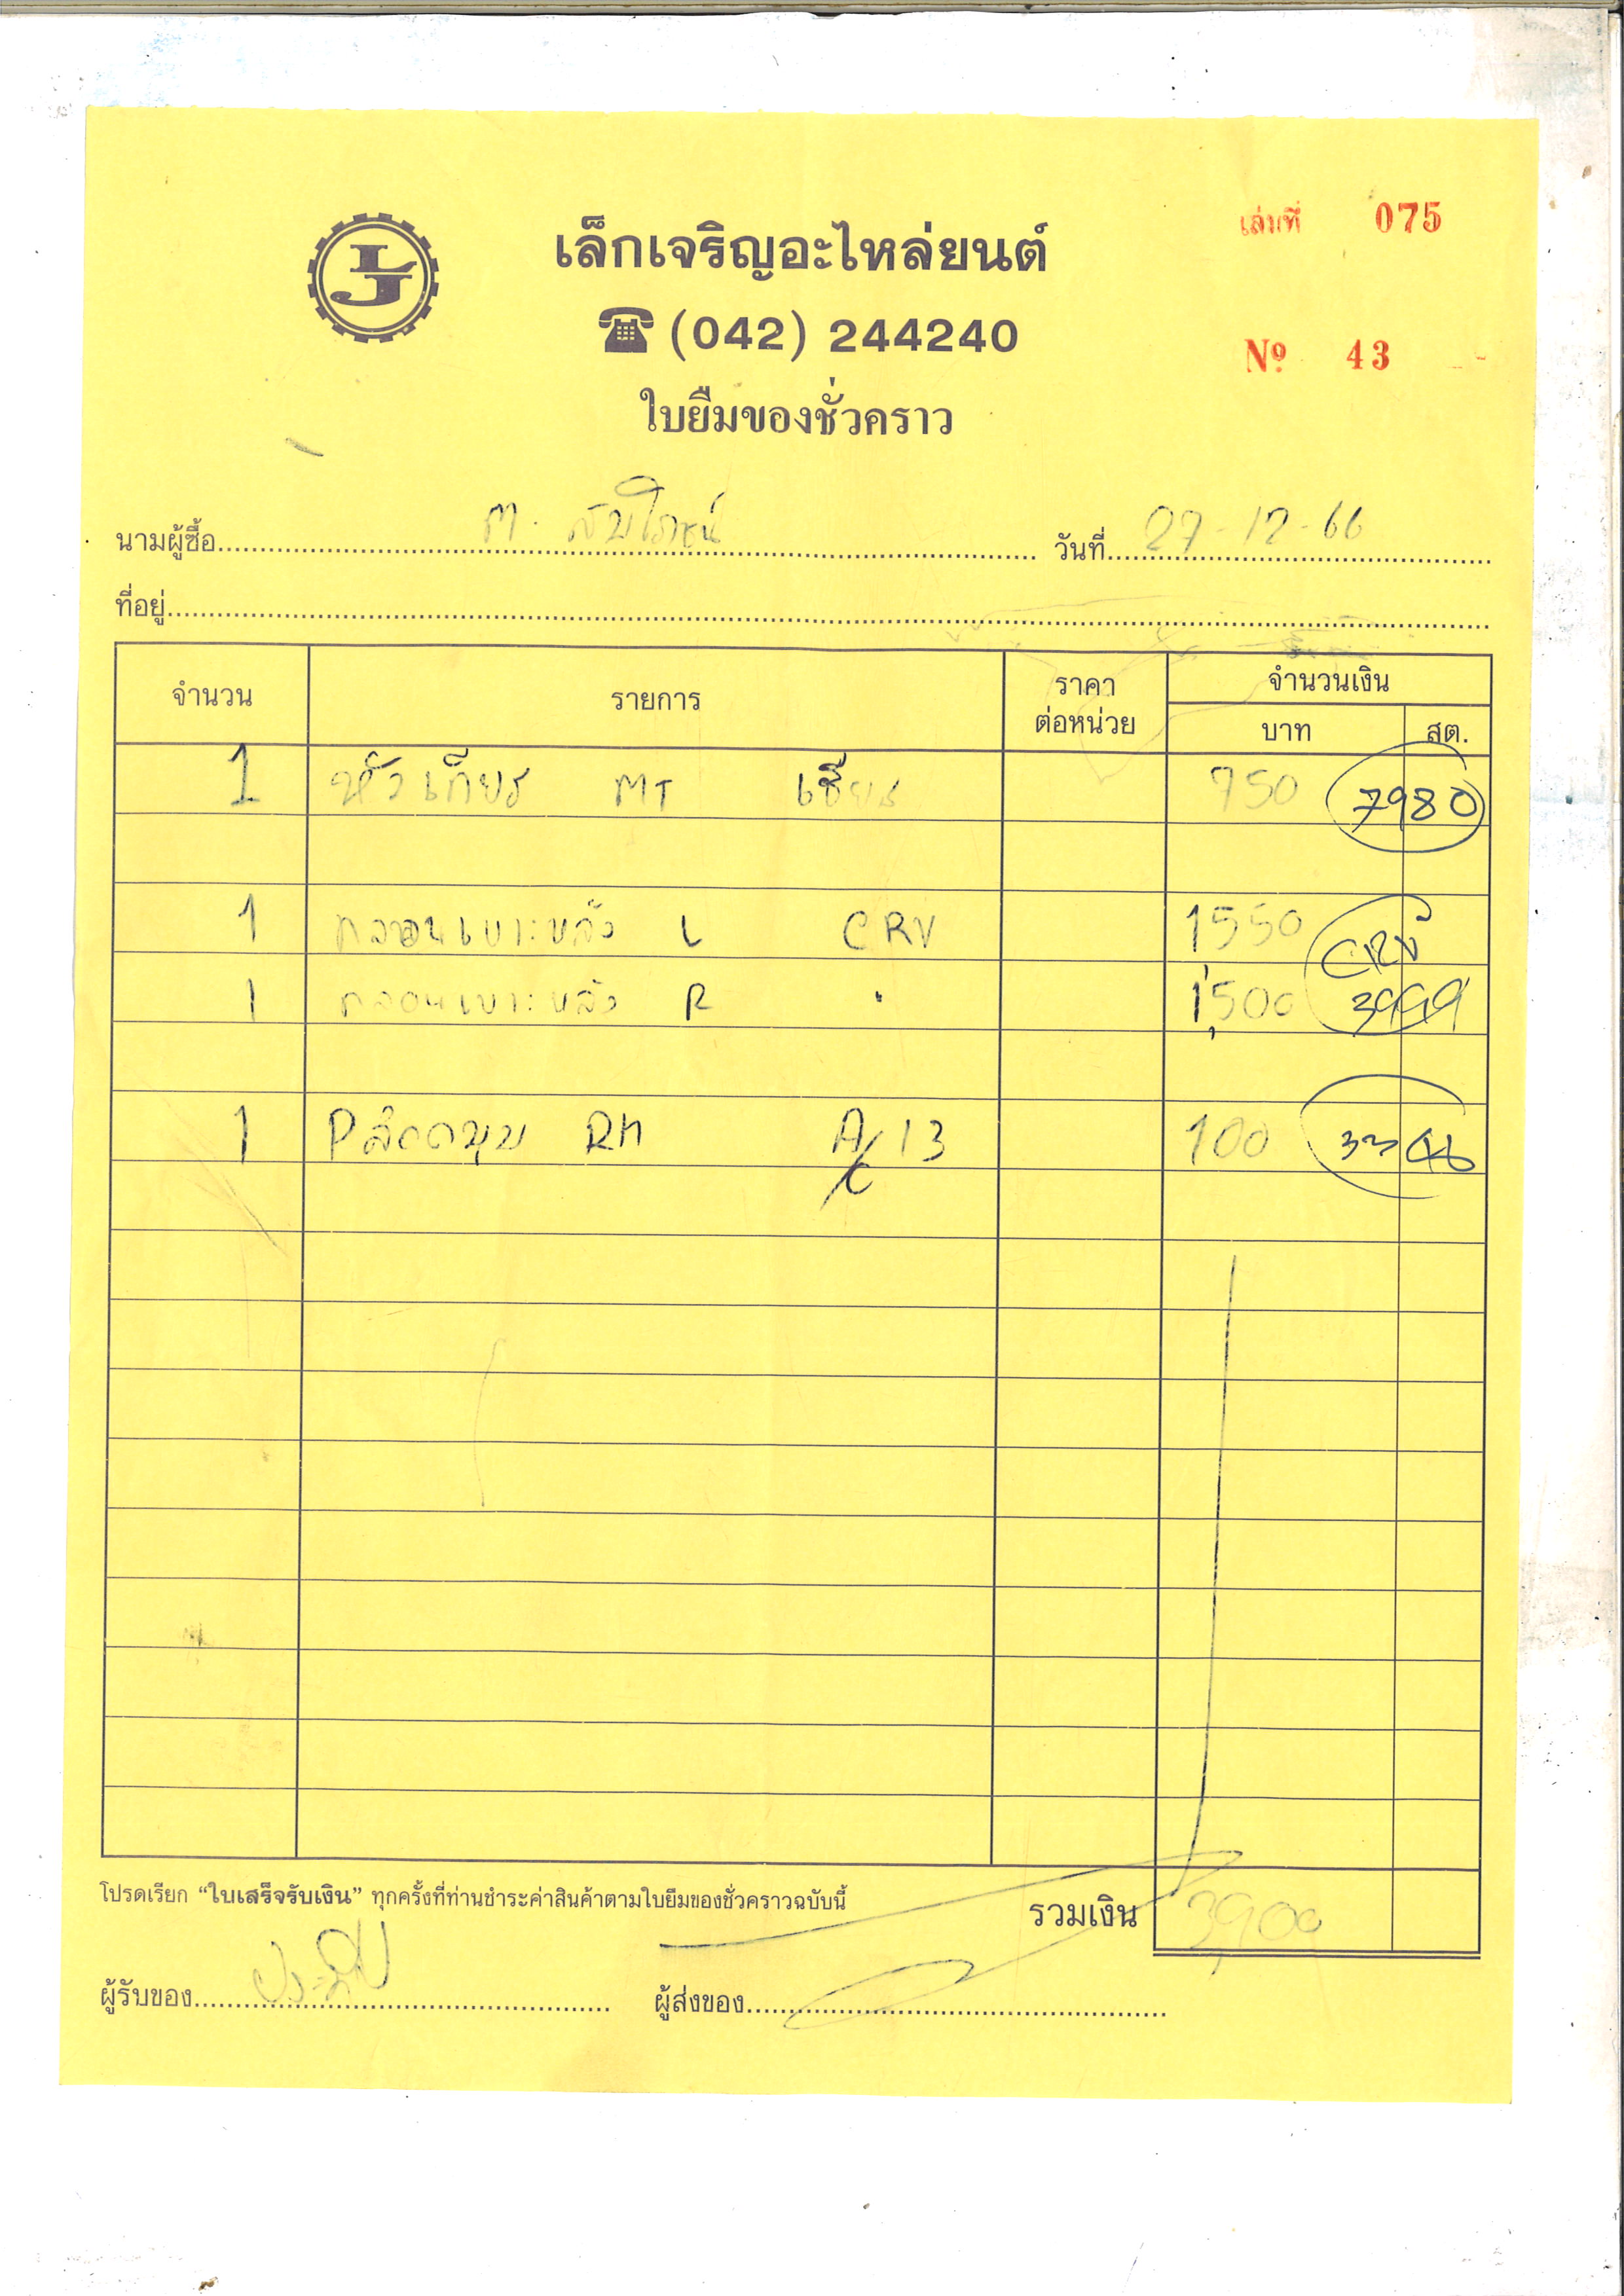 LJ
เล็กเจริญอะไหล่ยนต์
เล่มที่ 075
(042) 244240
№ 43
ใบยืมของชั่วคราว
นามผู้ซื้อ วันที่ 27-12-66
ที่อยู่
จำนวน รายการ ราคาต่อหน่วย จำนวนเงิน
บาท สต.
1 หัวเกียร MT 750 7980
1 กลอนเบาะหลัง L CRV 1550 CRV
1 กลอนเบาะหลัง R " 1,500 3999
1 RH 13 100
โปรดเรียก “ใบเสร็จรับเงิน” ทุกครั้งที่ท่านชำระค่าสินค้าตามใบยืมของชั่วคราวฉบับนี้ รวมเงิน 3,900
ผู้รับของ ผู้ส่งของ